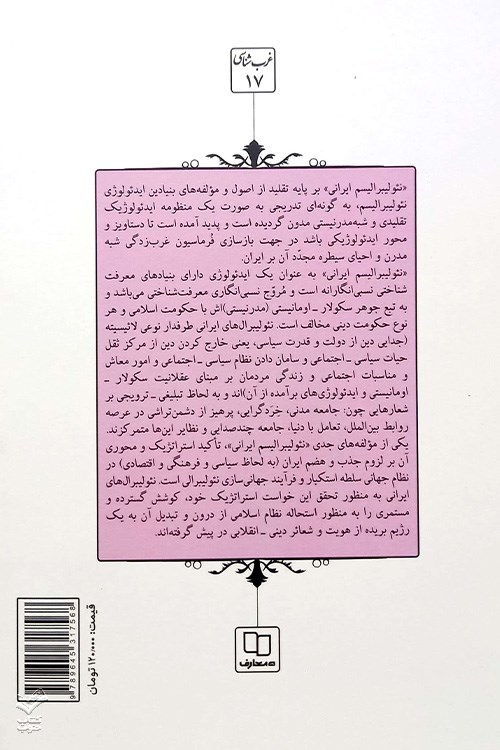 غرب شناسی
۱۷
«نئولیبرالیسم ایرانی» بر پایه تقلید از اصول و مؤلفه‌های بنیادین ایدئولوژی
نئولیبرالیسم، به گونه‌ای تدریجی به صورت یک منظومه ایدئولوژیک
تقلیدی و شبه‌مدرنیستی مدون گردیده است و پدید آمده است تا دستاویز و
محور ایدئولوژیکی باشد در جهت بازسازی فُرماسیون غرب‌زدگی شبه
مدرن و احیای سیطره مجدّد آن بر ایران.
«نئولیبرالیسم ایرانی» به عنوان یک ایدئولوژی دارای بنیادهای معرفت
شناختی نسبی‌انگارانه است و مُروّج نسبی‌انگاری معرفت‌شناختی می‌باشد و
به تبع جوهر سکولار ـ اومانیستی (مدرنیستی)اش با حکومت اسلامی و هر
نوع حکومت دینی مخالف است. نئولیبرال‌های ایرانی طرفدار نوعی لائیسیته
(جدایی دین از دولت و قدرت سیاسی، یعنی خارج کردن دین از مرکز ثقل
حیات سیاسی ـ اجتماعی و سامان دادن نظام سیاسی ـ اجتماعی و امور معاش
و مناسبات اجتماعی و زندگی مردمان بر مبنای عقلانیت سکولار ـ
اومانیستی و ایدئولوژی‌های برآمده از آن)اند و به لحاظ تبلیغی ـ ترویجی بر
شعارهایی چون: جامعه مدنی، خِردگرایی، پرهیز از دشمن‌تراشی در عرصه
روابط بین‌الملل، تعامل با دنیا، جامعه چندصدایی و نظایر این‌ها متمرکزند.
یکی از مؤلفه‌های جدی «نئولیبرالیسم ایرانی»، تأکید استراتژیک و محوری
آن بر لزوم جذب و هضم ایران (به لحاظ سیاسی و فرهنگی و اقتصادی) در
نظام جهانی سلطه استکبار و فرآیند جهانی‌سازی نئولیبرالی است. نئولیبرال‌های
ایرانی به منظور تحقق این خواست استراتژیک خود، کوشش گسترده و
مستمری را به منظور استحاله نظام اسلامی از درون و تبدیل آن به یک
رژیم بریده از هویت و شعائر دینی ـ انقلابی در پیش گرفته‌اند.
معارف
قیمت: ۱۲۰/۰۰۰ تومان
9 789645 317568